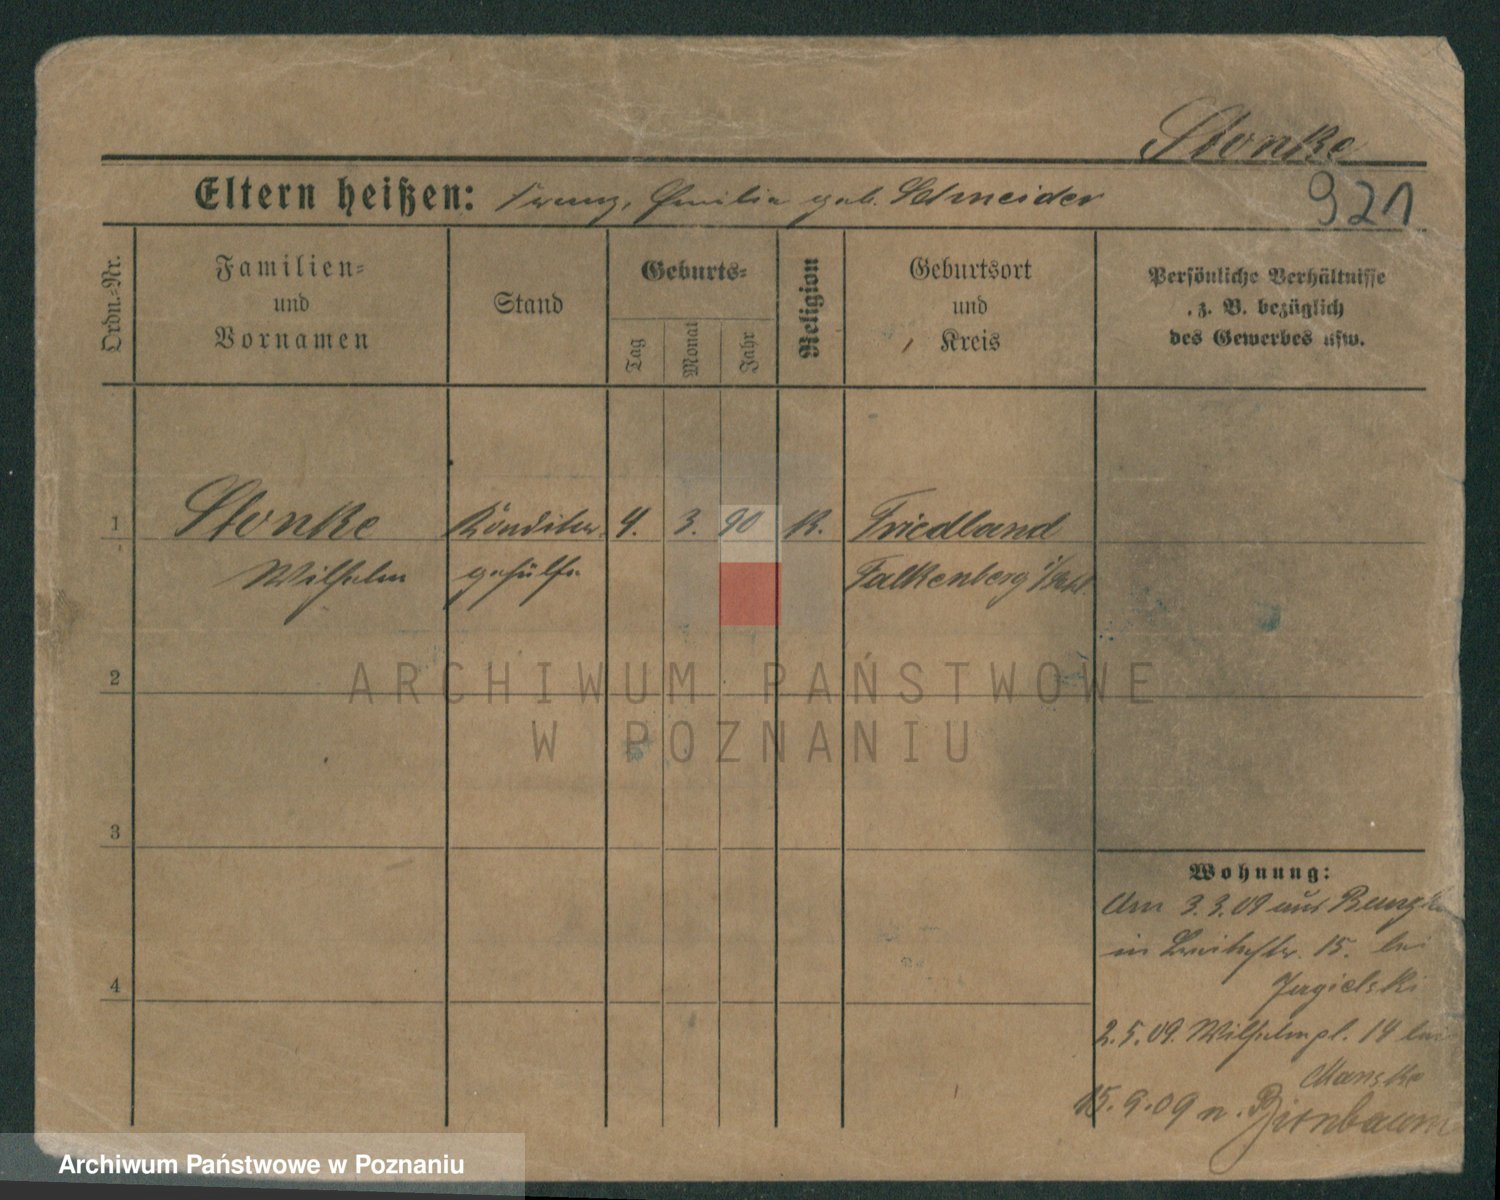 Stonke
Eltern heißen: Franz, Emilie geb. Schneider
921
Ordn.-Nr.
Familien-
und
Vornamen
Stand
Geburts-
Tag
Monat
Jahr
Religion
Geburtsort
und
Kreis
Persönliche Verhältnisse
z. B. bezüglich
des Gewerbes usw.
1
Stonke
Wilhelm
Konditor
gehülfe
4. 3. 90
K.
Friedland
Falkenberg
2
3
4
Wohnung:
Am 3.3.09 aus
in Breitestr. 15. bei
Jagielski
2.5.09. Wilhelmpl. 14 bei
Manske
15.9.09 n. Birnbaum
ARCHIWUM PAŃSTWOWE
W POZNANIU
Archiwum Państwowe w Poznaniu